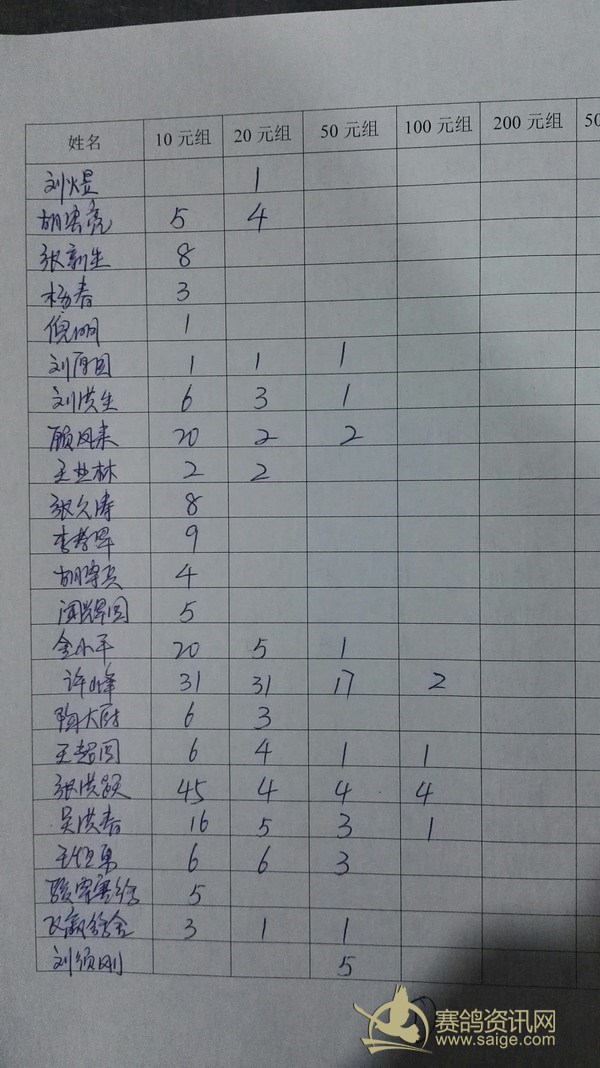 姓名 10元组 20元组 50元组 100元组 200元组 50
刘煜 1
胡宝亮 5 4
张新生 8
杨春 3
倪明 1
刘府国 1 1 1
刘洪生 6 3 1
顾凤来 20 2 2
王业林 2 2
张久涛 8
李孝军 9
胡学兵 4
闻辉国 5
金小平 20 5 1
许峰 31 31 17 2
陶大尉 6 3
王超国 6 4 1 1
张洪跃 45 4 4 4
吴洪春 16 5 3 1
王恒 6 6 3
5
鸽舍 3 1 1
刘须刚 5
赛鸽资讯网
www.saige.com